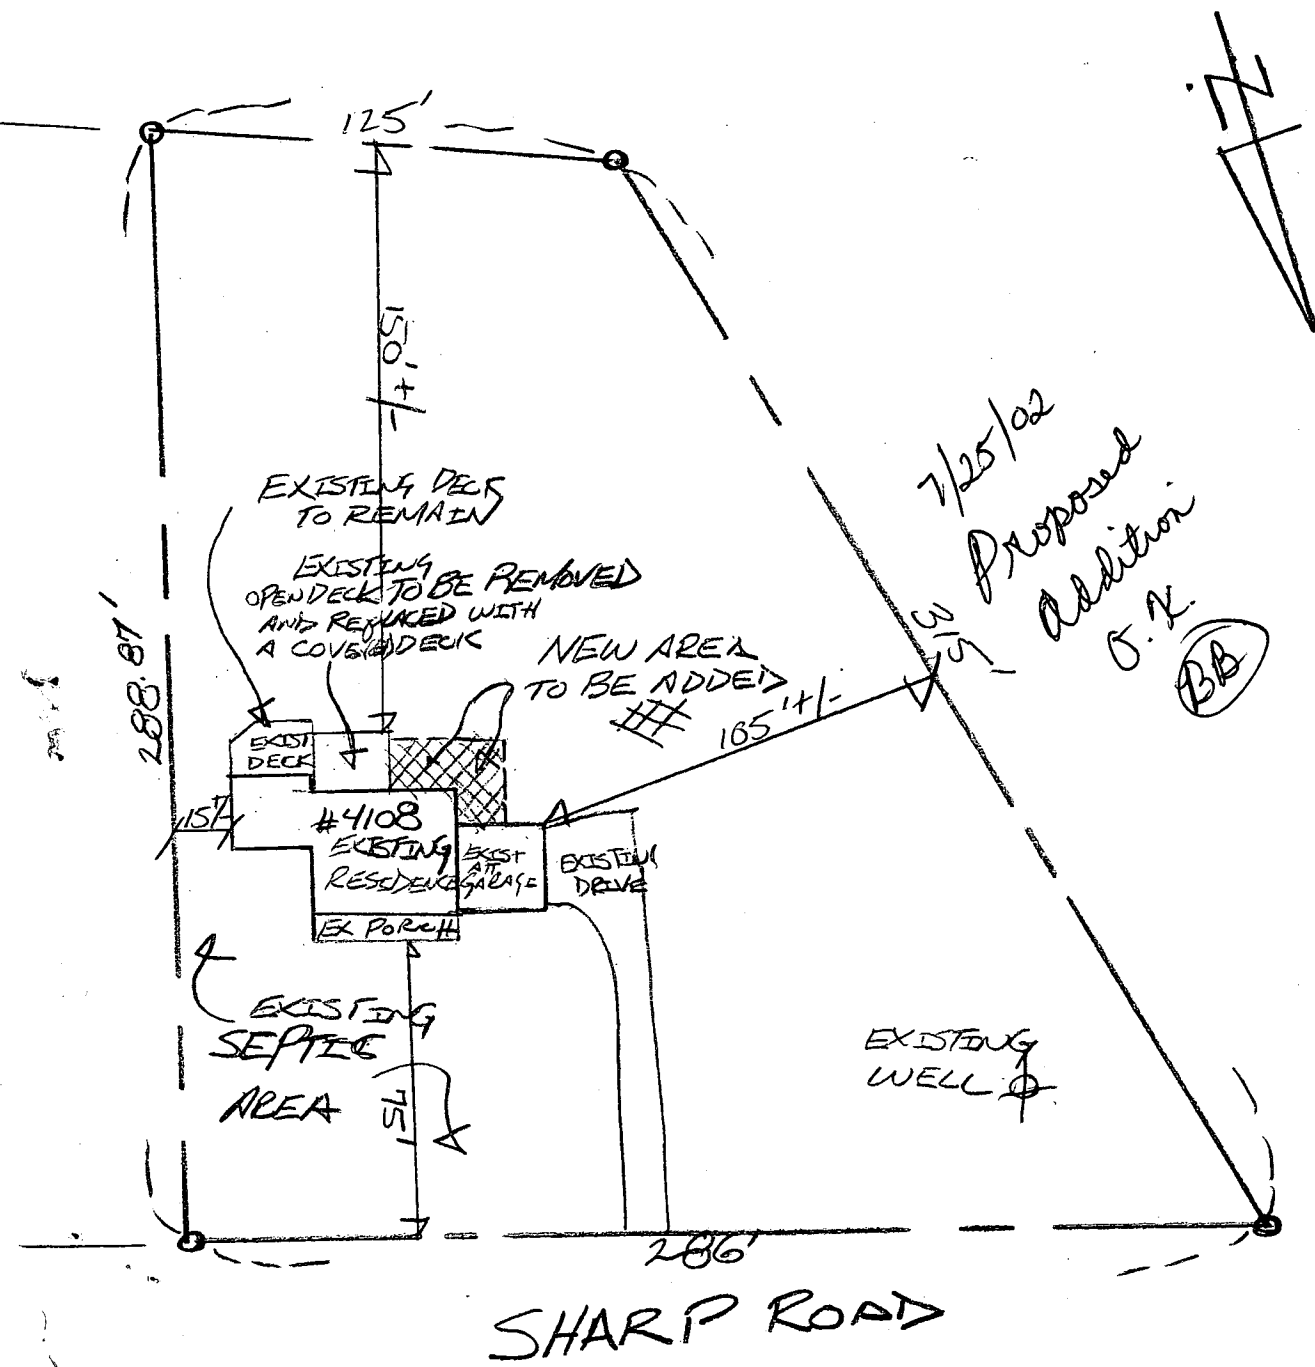 N
125'
150'+/-
7/25/02
Proposed
addition
O.K.
BB
EXISTING DECK
TO REMAIN
EXISTING
OPEN DECK TO BE REMOVED
AND REPLACED WITH
A COVERED DECK
NEW AREA
TO BE ADDED
288.87'
315'
165'+/-
EXIST
DECK
15'+/-
#4108
EXISTING
RESIDENCE
EXIST
ATT
GARAGE
EXISTING
DRIVE
EX PORCH
EXISTING
SEPTIC
AREA
75'
EXISTING
WELL
286'
SHARP ROAD